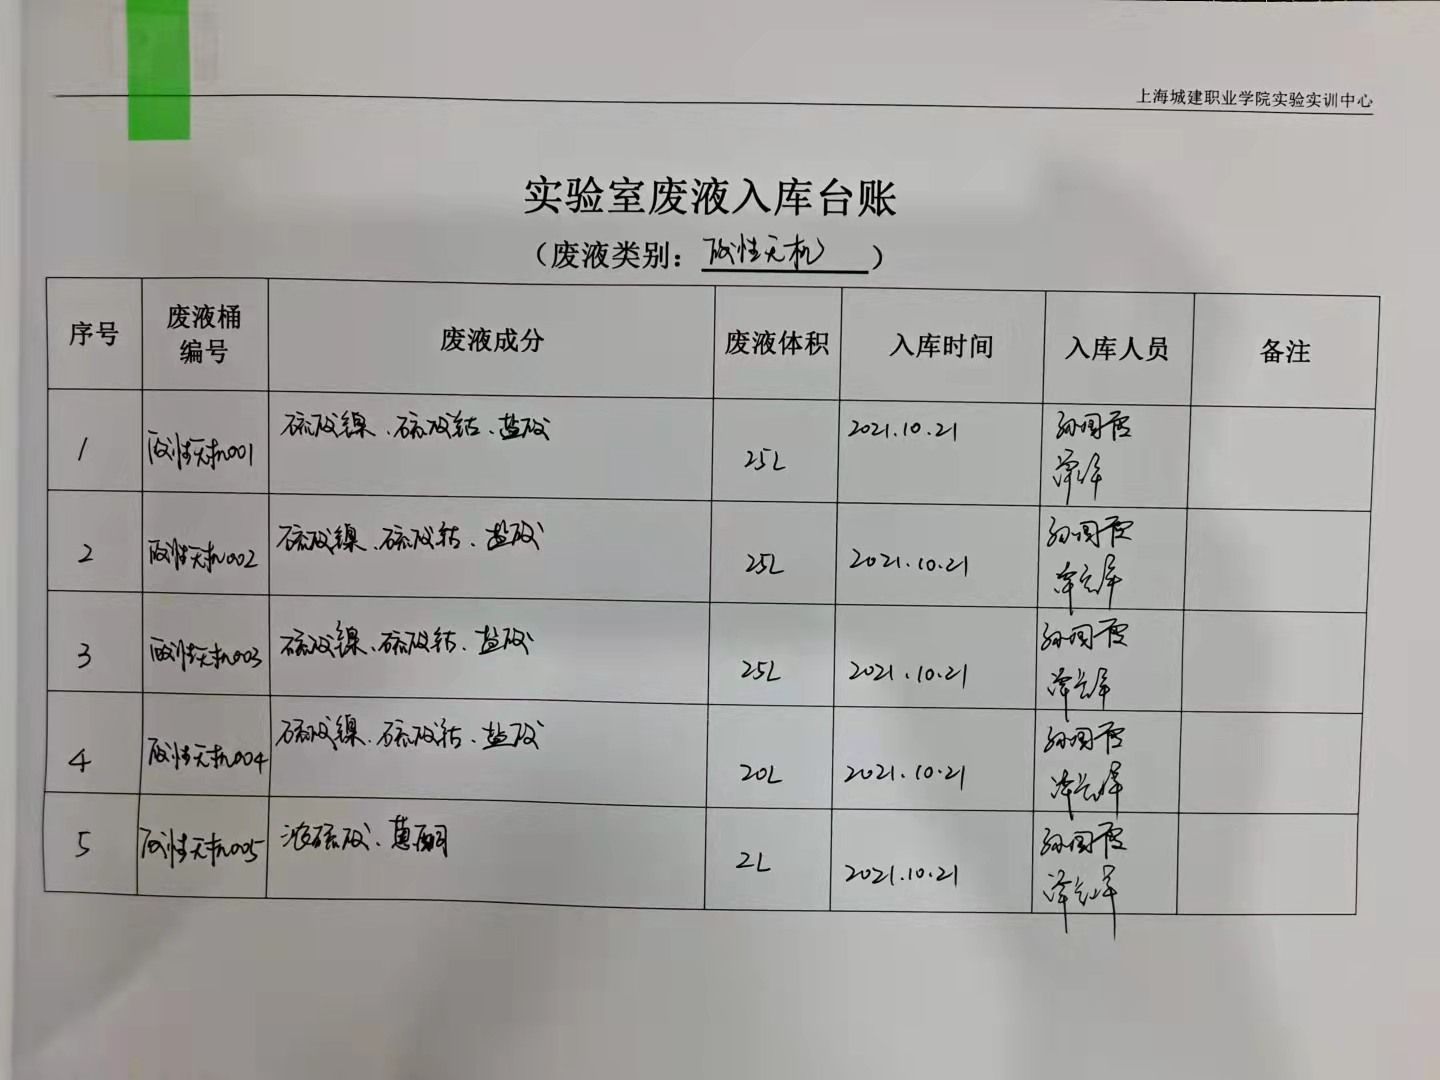 上海城建职业学院实验实训中心
实验室废液入库台账
（废液类别：酸性无机）
序号 废液桶编号 废液成分 废液体积 入库时间 入库人员 备注
1 酸性无机001 硫酸镍、硫酸钴、盐酸 25L 2021.10.21
2 酸性无机002 硫酸镍、硫酸钴、盐酸 25L 2021.10.21
3 酸性无机003 硫酸镍、硫酸钴、盐酸 25L 2021.10.21
4 酸性无机004 硫酸镍、硫酸钴、盐酸 20L 2021.10.21
5 酸性无机005 浓硫酸、蒽酮 2L 2021.10.21